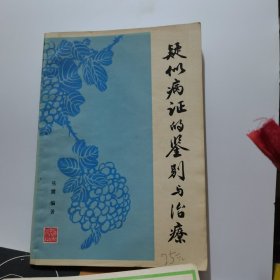 疑似病证的鉴别与治疗
编著